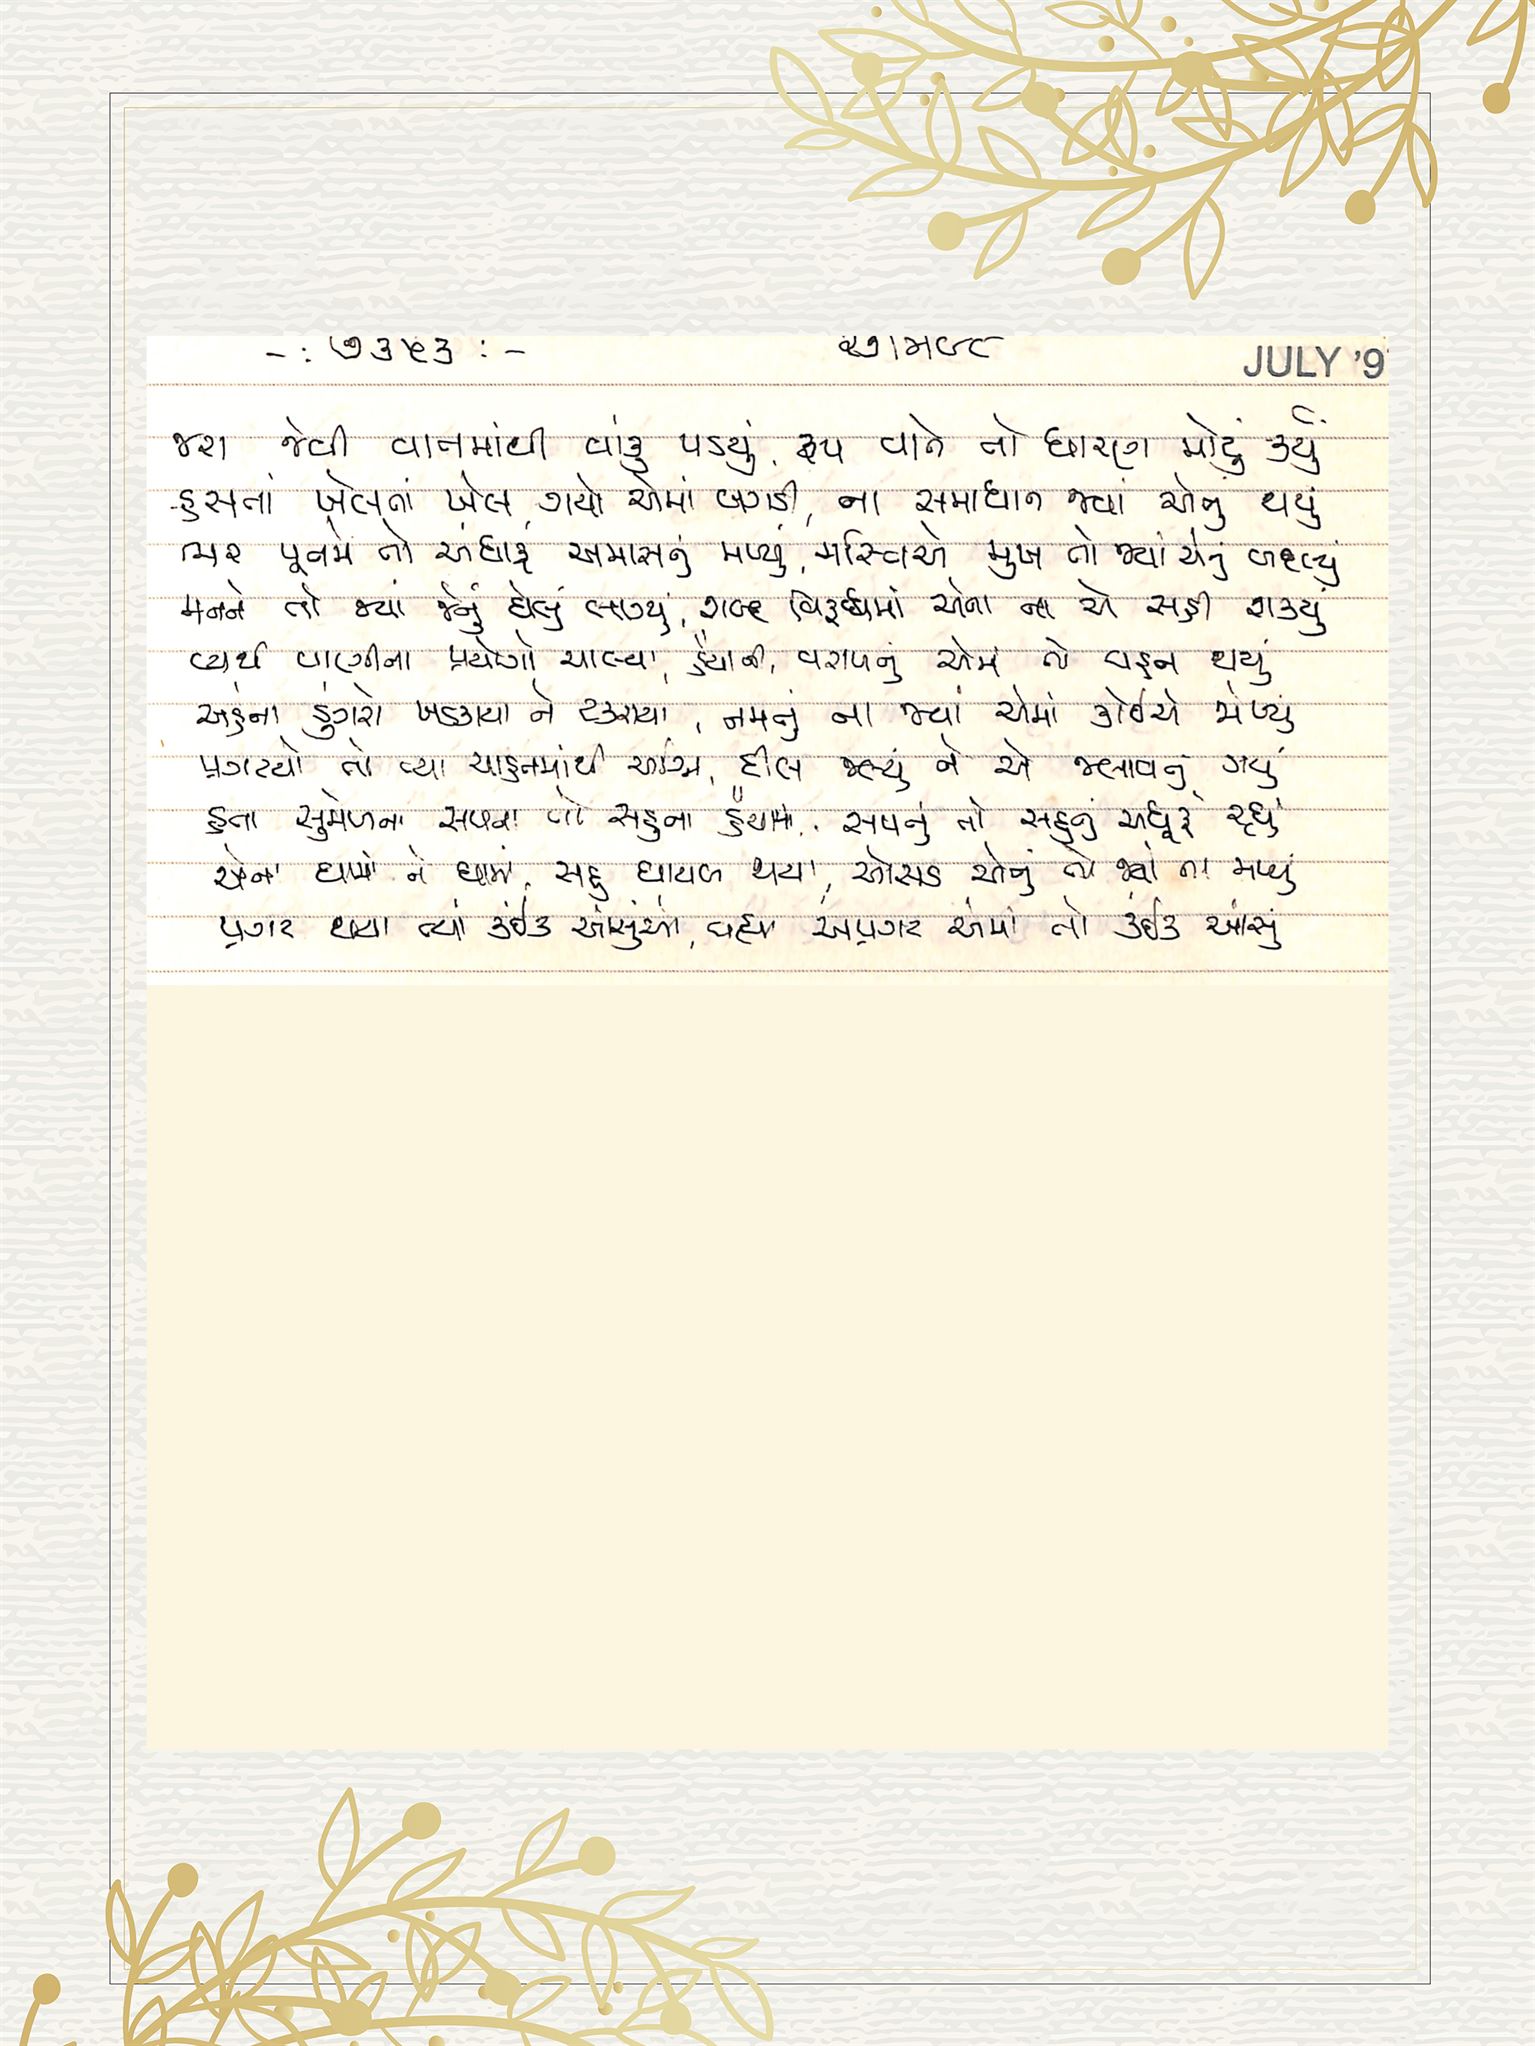 -: ૭૩૫૩ :- ૨૭|મ૯૮ JULY '9
જરા જેવી વાતમાંથી વાંકુ પડયું, રૂપ વાતે તો ધારણ મોટું કર્યું
હસતાં ખેલતાં ખેલ ગયો એમાં બગડી, ના સમાધાન જ્યાં એનું થયું
ભર પૂનમે તો અંધારૂં અમાસનું મળ્યું, મસ્તિએ મુખ તો જ્યાં એનું બદલ્યું
મનને તો જ્યાં જેનું ઘેલું લાગ્યું, શબ્દ વિરૂધ્ધમાં એના ના એ સહી શક્યું
વ્યર્થ વાણીના પ્રયોગો ચાલ્યા, હૈયાની, વરાળનું એમાં તો વહન થયું
અહંના ડુંગરો ખડકાયા ને ટકરાયા, નમવું ના જ્યાં એમાં કોઈએ
પ્રગટયો તો ત્યાં ચાહતમાંથી અગ્નિ, દીલ જલ્યું ને એ જલાવતું ગયું
હતા સુમેળના સપના તો સહુના હૈયામાં, સપનું તો સહુનું અધૂરૂં રહ્યું
એના ઘામાં ને ઘામાં, સહુ ઘાયલ થયા, ઓસડ એનું તો જ્યાં ના મળ્યું
પ્રગટ થયા ત્યાં કંઈક આંસુંઓ, વહ્યા અપ્રગટ એમાં તો કંઈક આંસું